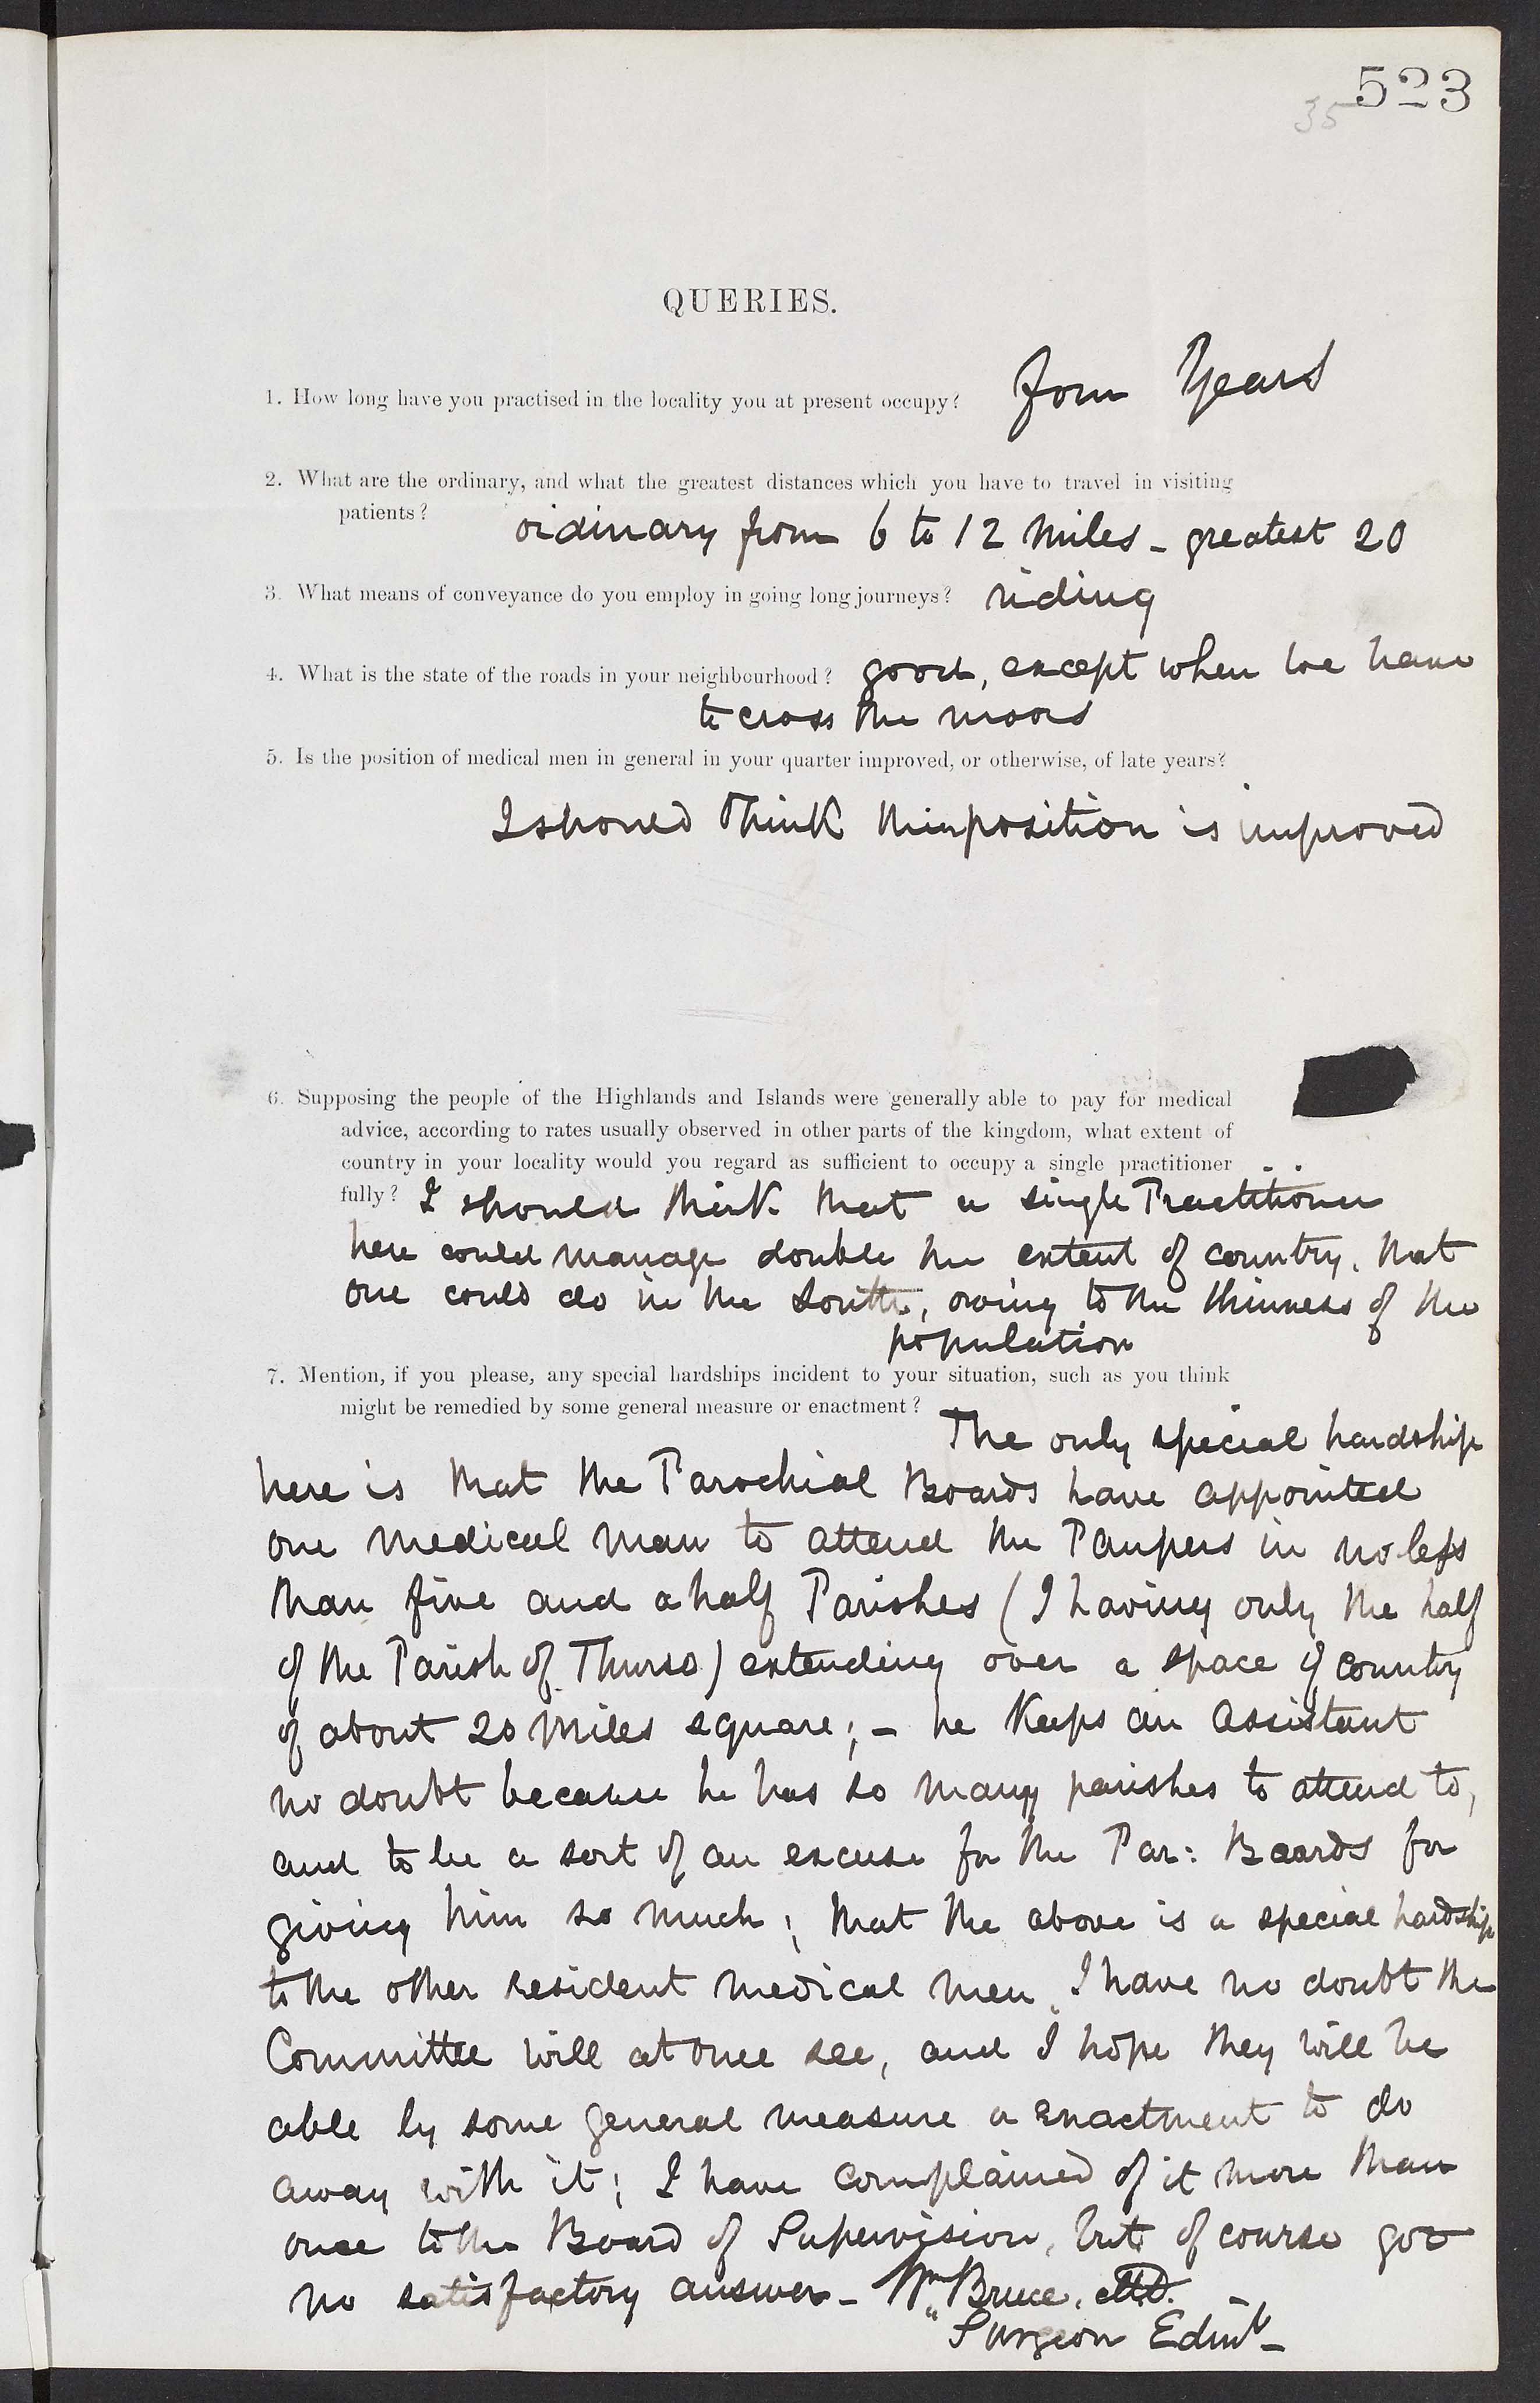 523
35
QUERIES.
1. How long have you practised in the locality you at present occupy? four Years
2. What are the ordinary, and what the greatest distances which you have to travel in visiting
patients? ordinary from 6 to 12 Miles - greatest 20
3. What means of conveyance do you employ in going long journeys? riding
4. What is the state of the roads in your neighbourhood? good, except when we have
to cross the moors
5. Is the position of medical men in general in your quarter improved, or otherwise, of late years?
I should think their position is improved
6. Supposing the people of the Highlands and Islands were generally able to pay for medical
advice, according to rates usually observed in other parts of the kingdom, what extent of
country in your locality would you regard as sufficient to occupy a single practitioner
fully? I should think that a single Practitioner
here could manage double the extent of country, that
one could do in the South, owing to the thinness of the
population
7. Mention, if you please, any special hardships incident to your situation, such as you think
might be remedied by some general measure or enactment?
The only special hardship
here is that the Parochial Boards have appointed
one Medical Man to attend the Paupers in no less
than five and a half Parishes (I having only the half
of the Parish of Thurso) extending over a space of country
of about 20 Miles square; - he Keeps an Assistant
no doubt because he has so many parishes to attend to,
and to be a sort of an excuse for the Par: Boards for
giving him so much; that the above is a special hardship
to the other resident medical men, I have no doubt the
Committee will at once see, and I hope they will be
able by some general measure or enactment to do
away with it; I have complained of it more than
once to the Board of Supervision, but of course got
no satisfactory answer - Wm Bruce, MD.
Surgeon Edinb -